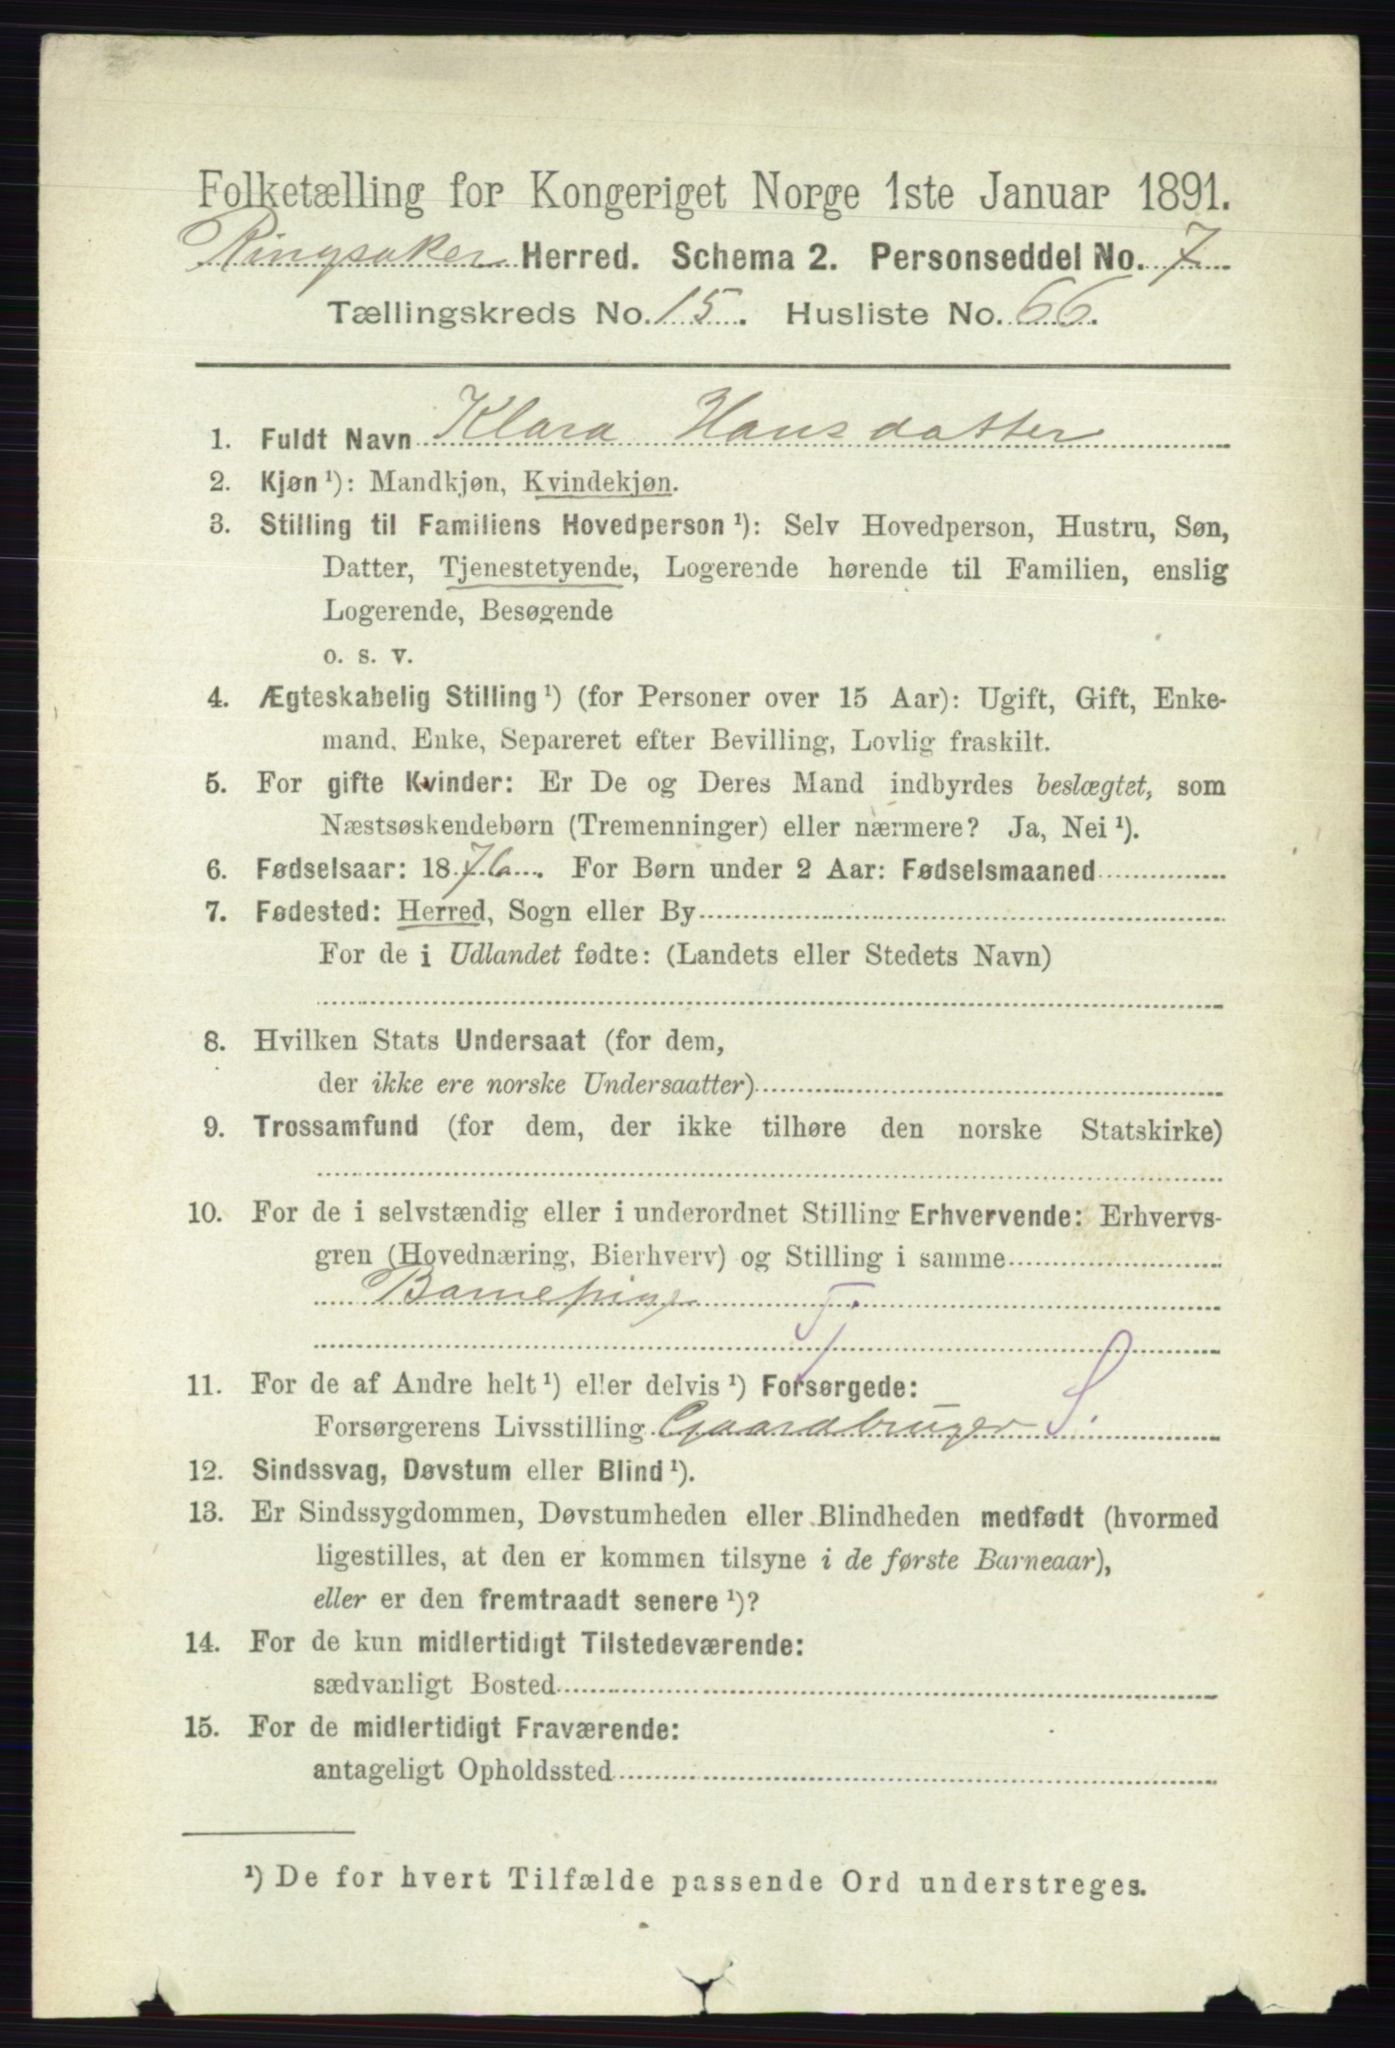 Folketælling for Kongeriget Norge 1ste Januar 1891.
Ringsaker Herred. Schema 2. Personseddel No. 7
Tællingskreds No. 15. Husliste No. 66.
1. Fuldt Navn Klara Hansdatter
2. Kjøn ¹): Mandkjøn, Kvindekjøn.
3. Stilling til Familiens Hovedperson ¹): Selv Hovedperson, Hustru, Søn,
Datter, Tjenestetyende, Logerende hørende til Familien, enslig
Logerende, Besøgende
o. s. v.
4. Ægteskabelig Stilling ¹) (for Personer over 15 Aar): Ugift, Gift, Enke-
mand, Enke, Separeret efter Bevilling, Lovlig fraskilt.
5. For gifte Kvinder: Er De og Deres Mand indbyrdes beslægtet, som
Næstsøskendebørn (Tremenninger) eller nærmere? Ja, Nei ¹).
6. Fødselsaar: 1876. For Børn under 2 Aar: Fødselsmaaned
7. Fødested: Herred, Sogn eller By
For de i Udlandet fødte: (Landets eller Stedets Navn)
8. Hvilken Stats Undersaat (for dem,
der ikke ere norske Undersaatter)
9. Trossamfund (for dem, der ikke tilhøre den norske Statskirke)
10. For de i selvstændig eller i underordnet Stilling Erhvervende: Erhvervs-
gren (Hovednæring, Bierhverv) og Stilling i samme
Barnepige T.
11. For de af Andre helt ¹) eller delvis ¹) Forsørgede:
Forsørgerens Livsstilling Gaardbruger S.
12. Sindssvag, Døvstum eller Blind ¹).
13. Er Sindssygdommen, Døvstumheden eller Blindheden medfødt (hvormed
ligestilles, at den er kommen tilsyne i de første Barneaar),
eller er den fremtraadt senere ¹)?
14. For de kun midlertidigt Tilstedeværende:
sædvanligt Bosted
15. For de midlertidigt Fraværende:
antageligt Opholdssted
¹) De for hvert Tilfælde passende Ord understreges.